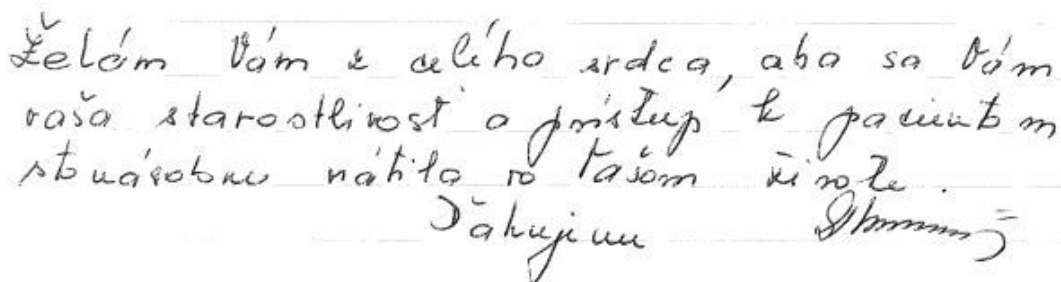 Želám Vám z celého srdca, aba sa Vám
vaša starostlivosť a prístup k pacientom
stonásobne vrátila vo Vašom živote.
Ďakujeme